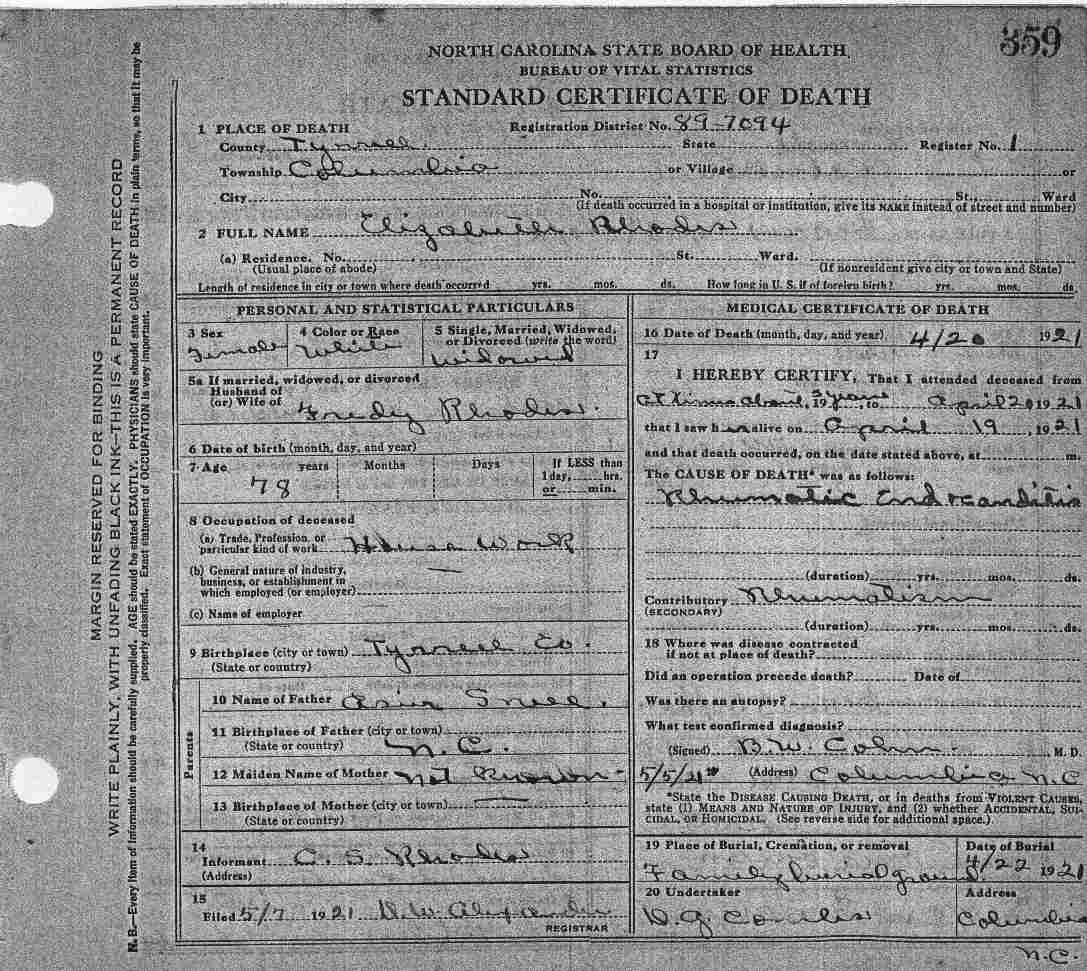 359
NORTH CAROLINA STATE BOARD OF HEALTH
BUREAU OF VITAL STATISTICS
STANDARD CERTIFICATE OF DEATH
1 PLACE OF DEATH Registration District No. 89-7094
County Tyrrell State Register No. 1
Township Columbia or Village or
City No. St., Ward
(If death occurred in a hospital or institution, give its NAME instead of street and number)
2 FULL NAME Elizabeth Rhodes
(a) Residence. No. St. Ward.
(Usual place of abode) (If nonresident give city or town and State)
Length of residence in city or town where death occurred yrs. mos. ds. How long in U. S. if of foreign birth? yrs. mos. ds.
PERSONAL AND STATISTICAL PARTICULARS
3 Sex
Female
4 Color or Race
White
5 Single, Married, Widowed,
or Divorced (write the word)
Widowed
5a If married, widowed, or divorced
Husband of
(or) Wife of Fredy Rhodes.
6 Date of birth (month, day, and year)
7 Age years Months Days If LESS than
1 day, hrs.
or min.
78
8 Occupation of deceased
(a) Trade, Profession, or
particular kind of work House Work
(b) General nature of industry,
business, or establishment in
which employed (or employer) —
(c) Name of employer
9 Birthplace (city or town) Tyrrell Co.
(State or country)
Parents
10 Name of Father Snell.
11 Birthplace of Father (city or town)
(State or country) N.C.
12 Maiden Name of Mother not Known -
13 Birthplace of Mother (city or town) —
(State or country)
14
Informant C. S. Rhodes
(Address)
15
Filed 5/7 1921 D. W. Alexander
REGISTRAR
MEDICAL CERTIFICATE OF DEATH
16 Date of Death (month, day, and year) 4/20 1921
17
I HEREBY CERTIFY, That I attended deceased from
at times about 5 years, 19 , to April 20 1921
that I saw her alive on April 19, 1921
and that death occurred, on the date stated above, at m.
The CAUSE OF DEATH* was as follows:
Rhumatic Endocarditis
(duration) yrs. mos. ds.
Contributory Rhumatism
(SECONDARY)
(duration) yrs. mos. ds.
18 Where was disease contracted
if not at place of death?
Did an operation precede death? Date of
Was there an autopsy?
What test confirmed diagnosis?
(Signed) B. W. M. D.
5/5/21 19 (Address) Columbia N.C
*State the DISEASE CAUSING DEATH, or in deaths from VIOLENT CAUSES,
state (1) MEANS AND NATURE OF INJURY, and (2) whether ACCIDENTAL, SUI-
CIDAL, OR HOMICIDAL. (See reverse side for additional space.)
19 Place of Burial, Cremation, or removal
Family burial ground
Date of Burial
4/22 1921
20 Undertaker
D. G.
Address
Columbia
N.C.
MARGIN RESERVED FOR BINDING
WRITE PLAINLY, WITH UNFADING BLACK INK—THIS IS A PERMANENT RECORD
N. B.—Every item of information should be carefully supplied. AGE should be stated EXACTLY. PHYSICIANS should state CAUSE OF DEATH in plain terms, so that it may be
properly classified. Exact statement of OCCUPATION is very important.